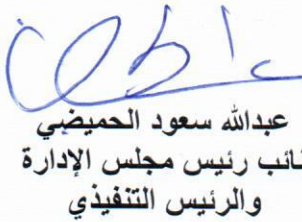 عبدالله سعود الحميضي
نائب رئيس مجلس الإدارة
والرئيس التنفيذي